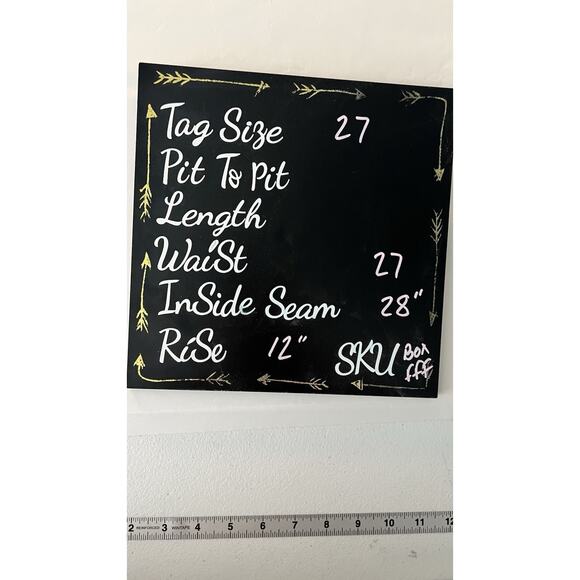 Tag Size 27
Pit To Pit
Length
Waist 27
InSide Seam 28"
RiSe 12" SKU Box
fff
2 REINFORCED 3 WINTAPE 4 5 6 7 8 9 10 11 12